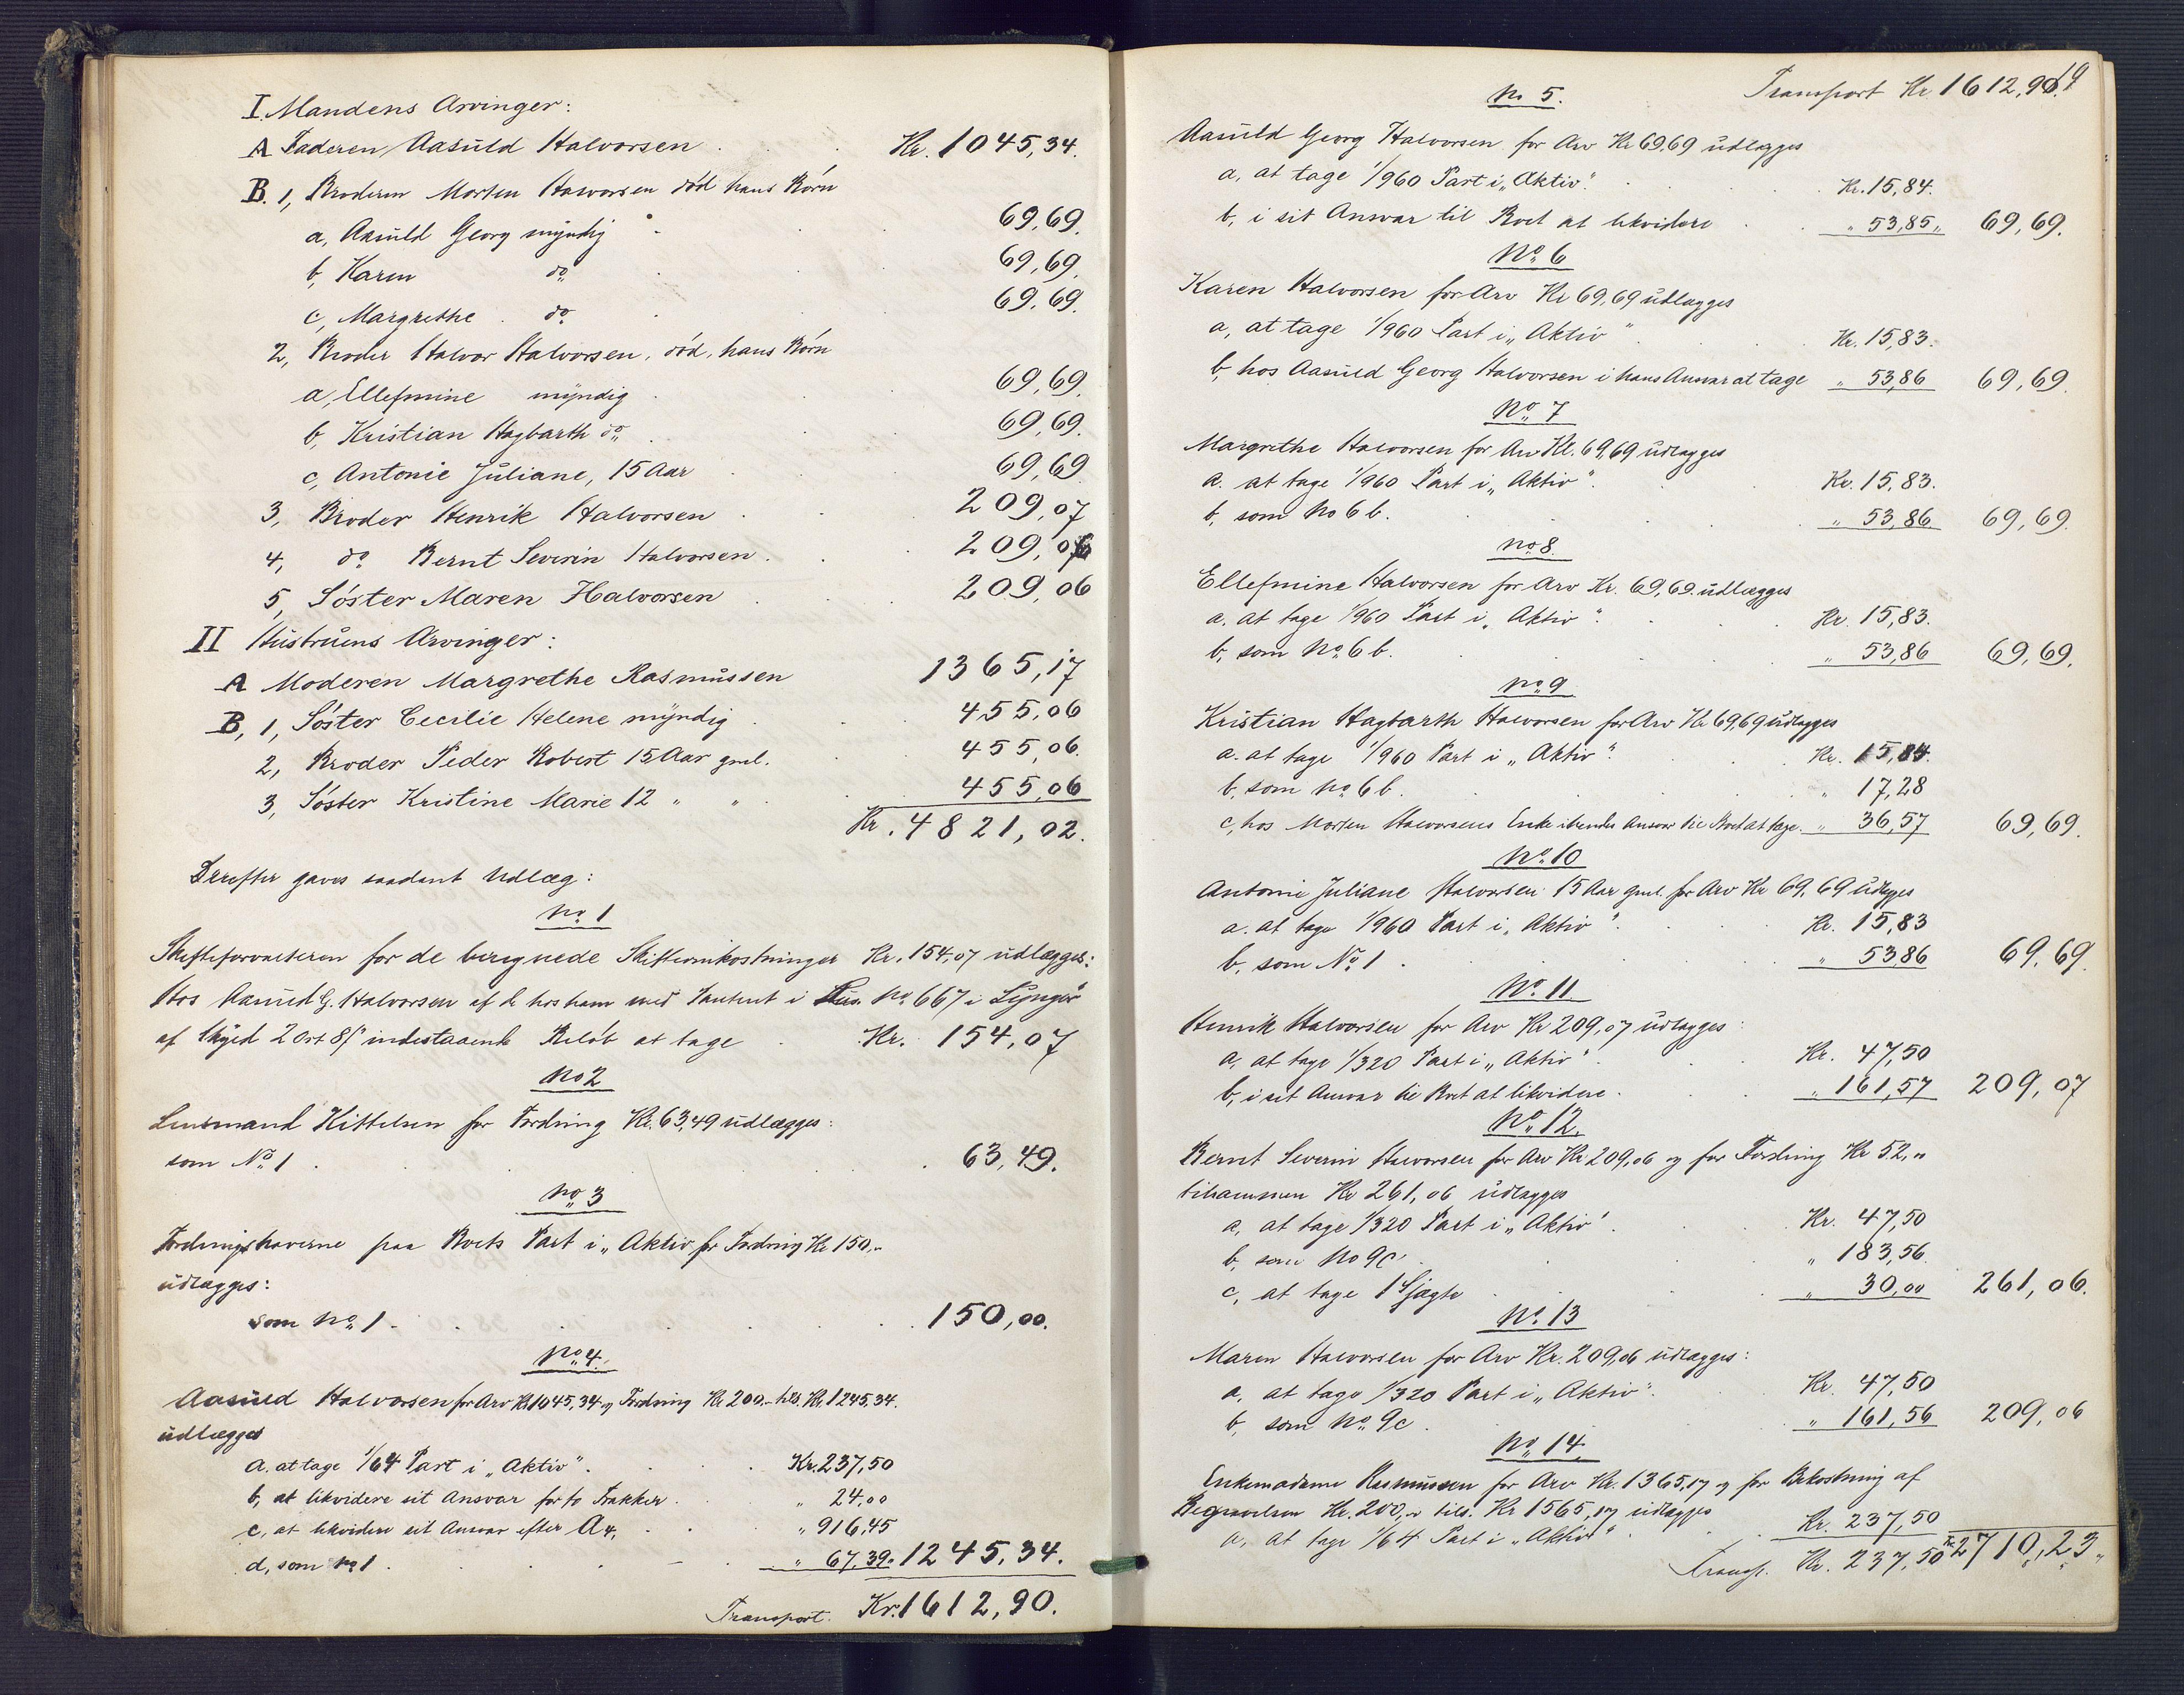 I. Mandens Arvinger:
A Faderen Aasuld Halvorsen . . . Kr. 1045,34.
B. 1, Broderen Morten Halvorsen død hans Børn
a, Aasuld Georg myndig . 69,69.
b, Karen do . 69,69.
c, Margrethe . do . 69,69.
2, Broder Halvor Halvorsen, død, hans Børn
a, Ellefmine myndig . 69,69.
b, Kristian Hagbarth do . 69,69.
c, Antonie Juliane, 15 Aar . 69,69
3, Broder Henrik Halvorsen . . 209,07
4, do Bernt Severin Halvorsen . . 209,06
5, Søster Maren Halvorsen . . 209,06
II Hustruens Arvinger:
A Moderen Margrethe Rasmussen 1365,17
B, 1, Søster Cecilie Helene myndig . . 455,06
2, Broder Peder Robert 15 Aar gml. . 455,06.
3, Søster Kristine Marie 12 " " . 455,06
Kr. 4821,02.
Derefter gaves saadant Udlæg:
No 1
Skifteforvalteren for de beregnede Skifteomkostninger Kr. 154,07 udlægges:
Hos Aasuld G. Halvorsen af d. hos ham med Panteret i Hus No 667 i Lyngør
af Skyld 2 Ort 8 ß indestaaende Beløb at tage . Kr. 154,07
No 2
Lensmand Kittelsen for Fordring Kr. 63,49 udlægges:
som No 1 . . . 63,49.
No 3
Fordringshaverne paa Boets Part i "Aktiv" for Fordring Kr 150,-
udlægges:
som No 1 . . . 150,00.
No 4.
Aasuld Halvorsen for Arv Kr 1045,34 og Fordring Kr 200.- tils. Kr. 1245,34.
udlægges
a. at tage 1/64 Part i "Aktiv" . . Kr. 237,50
b, at likvidere sit Ansvar for to Frakker . " 24,00
c, at likvidere sit Ansvar efter A 4, . " 916,45
d, som No 1 . . " 67,39. 1245,34.
Transport. Kr. 1612,90.
19
Transport Kr 1612,90.
No 5.
Aasuld Georg Halvorsen for Arv Kr 69,69 udlægges
a, at tage 1/960 Part i "Aktiv" . . Kr. 15,84.
b, i sit Ansvar til Boet at likvidere . " 53,85 " 69,69.
No 6
Karen Halvorsen for Arv Kr 69,69 udlægges
a, at tage 1/960 Part i "Aktiv" . . Kr. 15,83.
b, hos Aasuld Georg Halvorsen i hans Ansvar at tage " 53,86 69,69.
No 7
Margrethe Halvorsen for Arv Kr. 69,69 udlægges
a. at tage 1/960 Part i "Aktiv" . Kr. 15,83.
b, som No 6 b. . " 53,86 69,69.
No 8.
Ellefmine Halvorsen for Arv Kr. 69,69. udlægges
a. at tage 1/960 Part i "Aktiv" . . Kr. 15,83.
b, som No 6 b. . " 53,86 69,69.
No 9
Kristian Hagbarth Halvorsen for Arv Kr 69,69 udlægges
a. at tage 1/960 Part i "Aktiv" . Kr. 15,84.
b, som No 6 b. . " 17,28
c, hos Morten Halvorsens Enke i hendes Ansvar til Boet at tage. " 36,57 69,69.
No 10
Antonie Juliane Halvorsen 15 Aar gml. for Arv Kr 69,69 udlægges
a. at tage 1/960 Part i "Aktiv" . Kr. 15,83
b, som No 1 . " 53,86 69,69.
No 11.
Henrik Halvorsen for Arv Kr 209,07 udlægges:
a, at tage 1/320 Part i "Aktiv" . Kr. 47,50
b, i sit Ansvar til Boet at likvidere . " 161,57 209,07
No 12.
Bernt Severin Halvorsen for Arv Kr 209,06 og for Fordring Kr 52,"
tilsammen Kr 261,06 udlægges
a, at tage 1/320 Part i "Aktiv" . Kr. 47,50
b, som No 9 c . " 183,56
c, at tage 1 Sjægte . " 30,00 261,06.
No 13
Maren Halvorsen for Arv Kr. 209,06 udlægges:
a, at tage 1/320 Part i "Aktiv" . Kr. 47,50
b, som No 9 c . " 161,56 209,06
No 14.
Enkemadame Rasmussen for Arv Kr. 1365,17 og for Bekostning af
Begravelsen Kr. 200,- tils. Kr 1565,17 udlægges
a, at tage 1/64 Part i "Aktiv" . Kr. 237,50
Transp. Kr. 237,50 Kr. 2710,23.